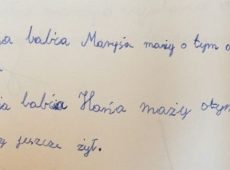 babcia Marysia marzy o tym
babcia Hania marzy o tym
jeszcze żył.